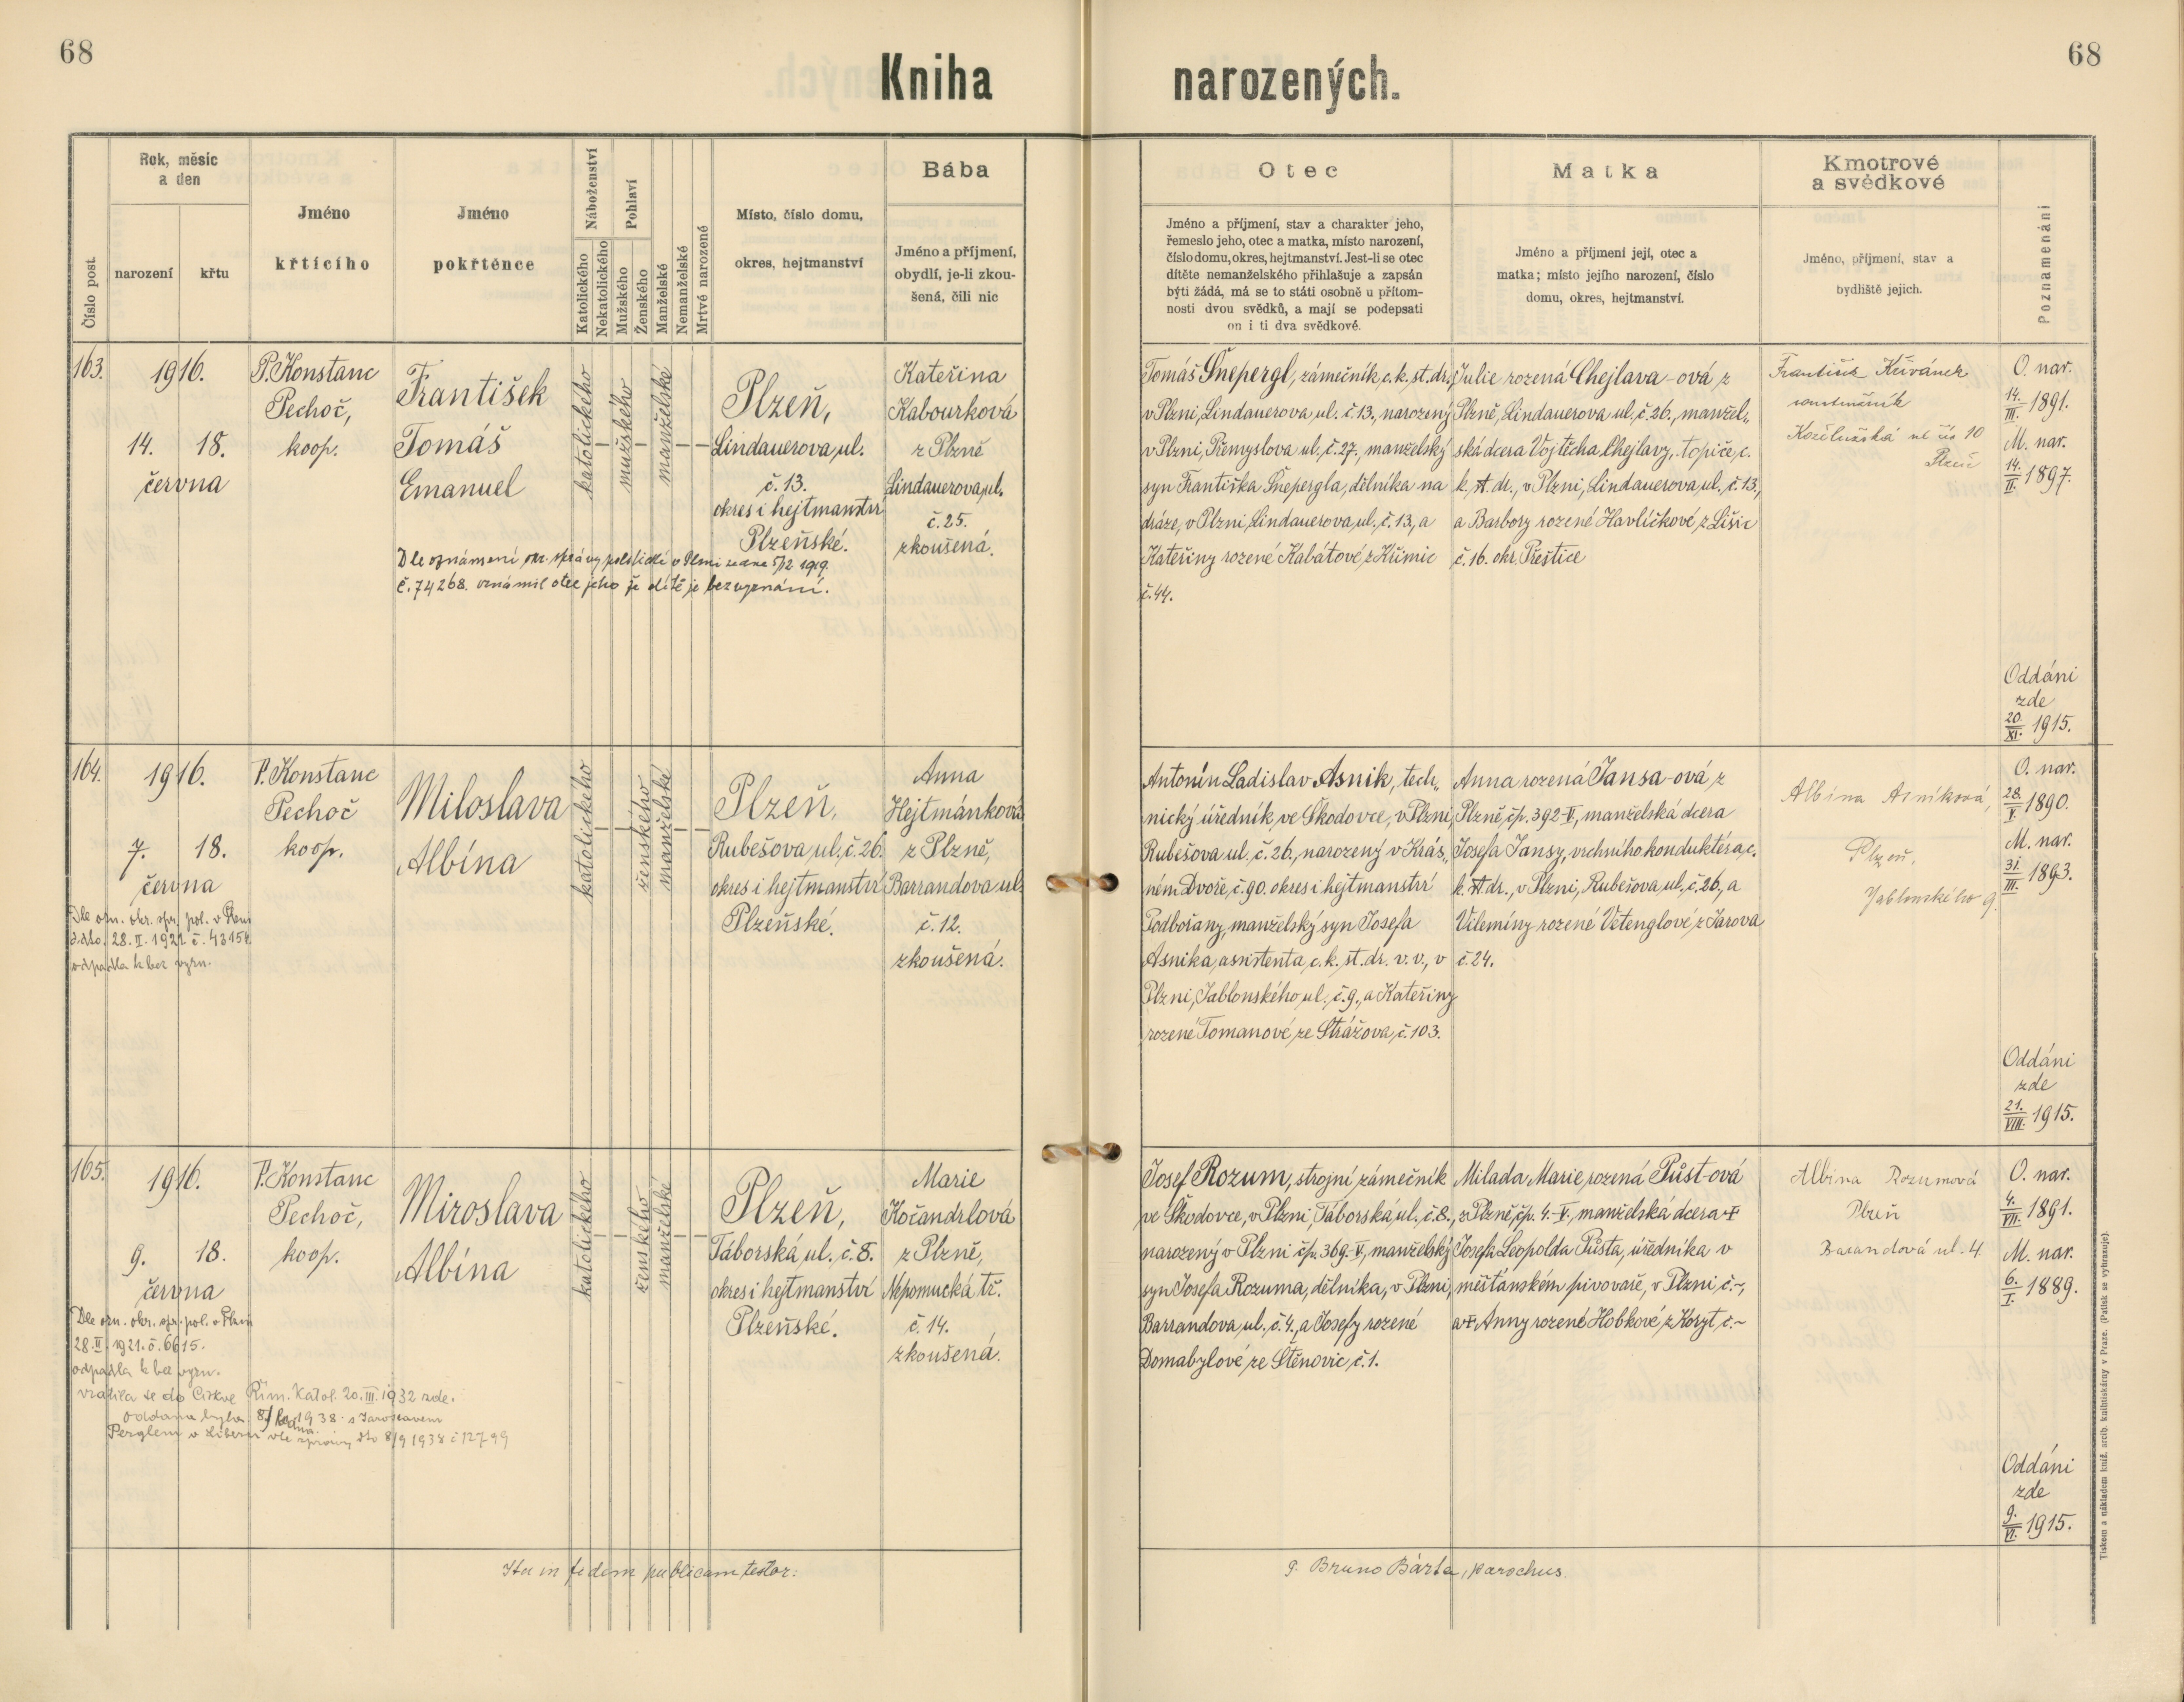 68
68
Kniha narozených.
Číslo post.
Rok, měsíc
a den
narození
křtu
Jméno
křtícího
Jméno
pokřtěnce
Náboženství
Katolického
Nekatolického
Pohlaví
Mužského
Ženského
Manželské
Nemanželské
Mrtvé narozené
Místo, číslo domu,
okres, hejtmanství
Bába
Jméno a příjmení,
obydlí, je-li zkou-
šená, čili nic
Otec
Jméno a příjmení, stav a charakter jeho,
řemeslo jeho, otec a matka, místo narození,
číslo domu, okres, hejtmanství. Jest-li se otec
dítěte nemanželského přihlašuje a zapsán
býti žádá, má se to státi osobně u přítom-
nosti dvou svědků, a mají se podepsati
on i ti dva svědkové.
Matka
Jméno a příjmení její, otec a
matka; místo jejího narození, číslo
domu, okres, hejtmanství.
Kmotrové
a svědkové
Jméno, příjmení, stav a
bydliště jejich.
Poznamenání
163.
1916.
14. 18.
června
P. Konstanc
Pechoč,
koop.
František
Tomáš
Emanuel
katolického
mužského
manželské
Plzeň,
Lindauerova ul.
č. 13.
okres i hejtmanství
Plzeňské.
Kateřina
Kabourková
z Plzně
Lindauerova ul.
č. 25.
zkoušená.
Dle oznámení okr. správy politické v Plzni ze dne 5/12 1919.
č. 74268. oznámil otec jeho že dítě je bez vyznání.
Tomáš Šnepergl, zámečník c. k. st. dr.,
v Plzni, Lindauerova ul. č. 13., narozený
v Plzni, Přemyslova ul. č. 27., manželský
syn Františka Šnepergla, dělníka na
dráze, v Plzni, Lindauerova ul. č. 13, a
Kateřiny rozené Kabátové z Křimic
č. 44.
Julie rozená Chejlava-ová z
Plzně, Lindauerova ul. č. 26., manžel„
ská dcera Vojtěcha Chejlavy, topiče, c.
k. st. dr., v Plzni, Lindauerova ul. č. 13.,
a Barbory rozené Havlíčkové z Lišic
č. 16. okr. Přeštice
František Křivánek
Plzeň
O. nar.
14./III. 1891.
M. nar.
14./II. 1897.
Oddáni
zde
20./XI. 1915.
164.
1916.
7. 18.
června
Dle ozn. okr. spr. pol. v Plzni
ddto. 28. II. 1921 č. 43154
odpadla k bez vyzn.
P. Konstanc
Pechoč
koop.
Miloslava
Albína
katolického
ženského
manželské
Plzeň,
Rubešova ul. č. 26.
okres i hejtmanství
Plzeňské.
Anna
Hejtmánková
z Plzně,
Barrandova ul.
č. 12.
zkoušená.
Antonín Ladislav Asnik, tech„
nický úředník ve Škodovce, v Plzni,
Rubešova ul. č. 26., narozený v Krás„
ném Dvoře, č. 90. okres i hejtmanství
Podbořany, manželský syn Josefa
Asnika, assistenta c. k. st. dr. v. v., v
Plzni, Jablonského ul., č. 9., a Kateřiny
rozené Tomanové ze Strážova, č. 103.
Anna rozená Jansa-ová z
Plzně čp. 392-V, manželská dcera
Josefa Jansy, vrchního konduktéra, c.
k. st. dr., v Plzni, Rubešova ul., č. 26., a
Vilemíny rozené Vetenglové z Jarova
č. 24.
Albína Asníková,
Plzeň,
Jablonského 9.
O. nar.
28./V. 1890.
M. nar.
31/III. 1893.
Oddáni
zde
21./VIII. 1915.
165.
1916.
9. 18.
června
Dle ozn. okr. spr. pol. v Plzni
28. II. 1921. č. 6615.
odpadla k bez vyzn.
vrátila se do Církve Řím. Katol. 20. III. 1932 zde.
oddána byla 1938 s Jaroslavem
Perglem v Liberci dle zprávy dto 8/9 1938 č 12799
P. Konstanc
Pechoč,
koop.
Miroslava
Albína
katolického
ženského
manželské
Plzeň,
Táborská ul. č. 8.
okres i hejtmanství
Plzeňské.
Marie
Kočandrlová
z Plzně,
Nepomucká tř.
č. 14.
zkoušená.
Josef Rozum, strojní zámečník
ve Škodovce, v Plzni, Táborská ul. č. 8.,
narozený v Plzni čp. 369.-V, manželský
syn Josefa Rozuma, dělníka, v Plzni,
Barrandova ul. č. 4., a Josefy rozené
Domabylové ze Stěnovic č. 1.
Milada Marie rozená Půst-ová
z Plzně, čp. 4.-V., manželská dcera †
Josefa Leopolda Půsta, úředníka v
měšťanském pivovaře, v Plzni č. ~,
a † Anny rozené Hobkové z Koryt č. ~
Albina Rozumová
Plzeň
Barandová ul. 4
O. nar.
4./VII. 1891.
M. nar.
6./I. 1889.
Oddáni
zde
9./VI. 1915.
Ita in fidem publicam testor:
P. Bruno Bárta, parochus
Tiskem a nákladem kníž. arcib. knihtiskárny v Praze. (Patisk se vyhrazuje).